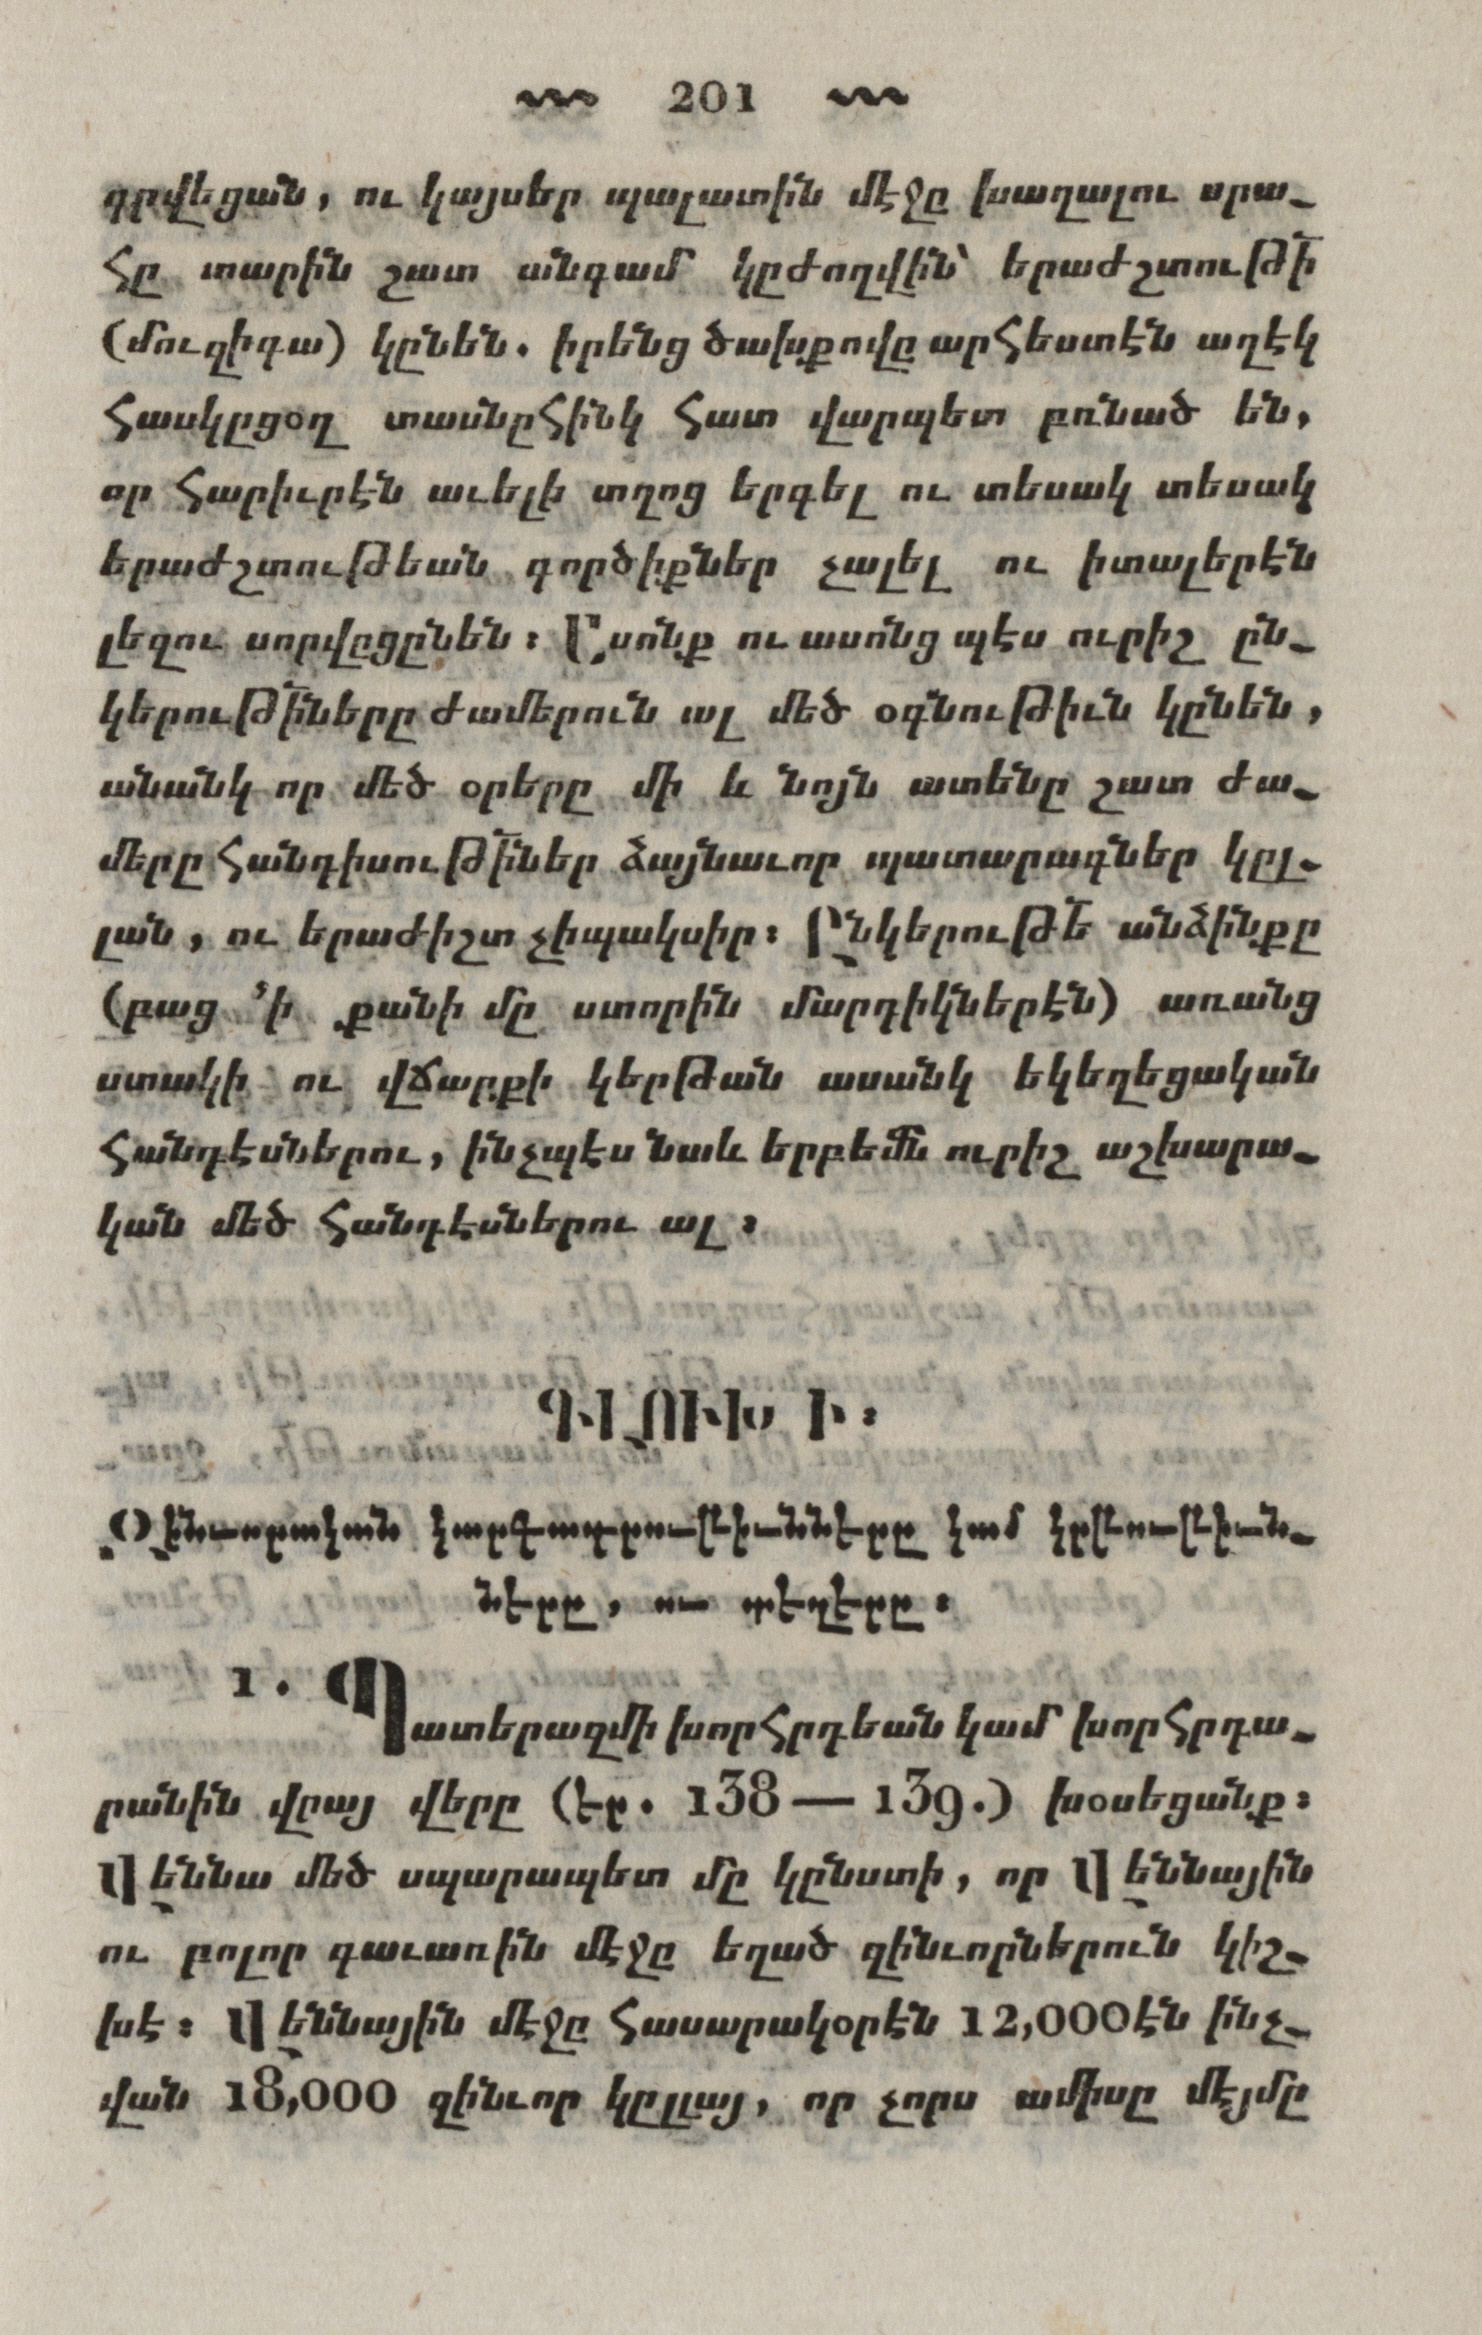 201
գրվեցան, ու կայսեր պալատին մէջը խաղալու սրա֊
հը տարին շատ անգամ կըժողվին՝ երաժշտութի՜
(մուզիգա) կընեն. իրենց ծախքովը արհեստէն աղէկ
հասկըցօղ տասնըհինկ հատ վարպետ բռնած են,
որ հարիւրէն աւելե տղոց երգել ու տեսակ տեսակ
երաժշտութեան գործիքներ չալել ու իտալերէն
լեզու սորվըցընեն։ Ասոնք ու ասոնց պէս ուրիշ ըն֊
կերութի՜նները ժամերուն ալ մեծ օգնութիւն կընեն,
անանկ որ մեծ օրերը մի և նոյն ատենը շատ ժա֊
մերը հանդիսութի՜ններ ձայնաւոր պատարագներ կըլ֊
լան, ու երաժիշտ չիպակսիր։ Ընկերութե՜ անձինքը
(բաց ՚ի քանի մը ստորին մարդիկներէն) առանց
ստակի ու վճարքի կերթան ասանկ եկեղեցական
հանդէսներու, ինչպէս նաև երբեմն ուրիշ աշխարա֊
կան մեծ հանդէսներու ալ։
ԳԼՈՒԽ Ի։
Զինւորական կարգադրութիւնները կամ կրթութիւն֊
ները, ու տեղերը։
1. Պատերազմի խորհրդեան կամ խորհրդա֊
րանին վըայ վերը (էր. 138 — 139.) խօսեցանք։
Վէննա մեծ սպարապետ մը կընստի, որ Վէննային
ու բոլոր գաւառին մէջը եղած զինւորներուն կիշ֊
խէ։ Վէննային մէջը հասարակօրէն 12,000էն ինչ֊
վան 18,000 զինւոր կըլլայ, որ չորս ամիսը մէյմը